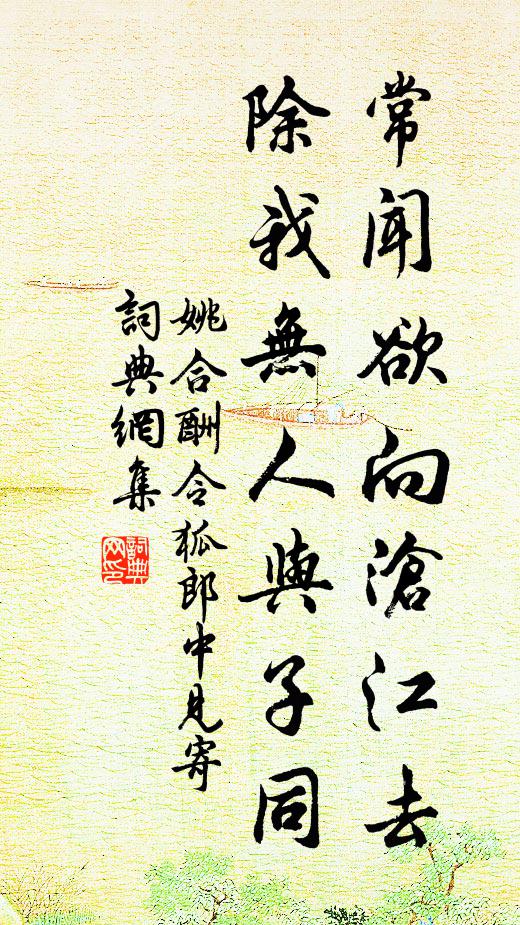 常聞欲向滄江去
除我無人與子同
姚合酬令狐郎中見寄
詞典網集
詞典
网印